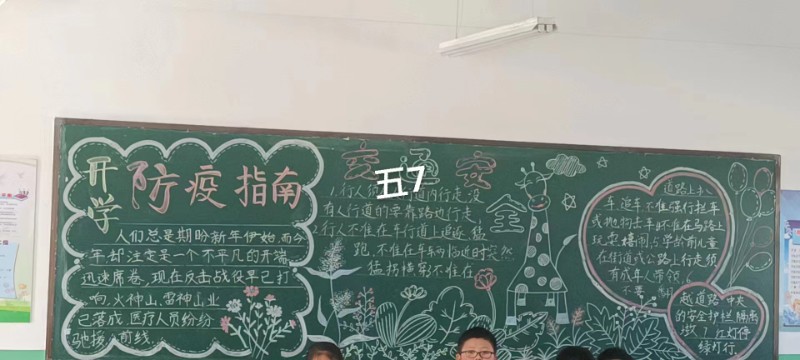 开学
防疫指南
人们总是期盼新年伊始,而今
年却注定是一个不平凡的开端
迅速席卷,现在反击战役早已打
响,火神山,雷神山业
已落成,医疗人员纷纷
驰援前线.
交通安
全
五7
1.行人须在人行道内行走,没
有人行道的要靠路边行走.
2.行人不准在车行道上追逐,猛
跑,不准在车辆临近时突然
猛拐横穿不准在
道路上扒
车,追车,不准强行拦车
或抛物击车,不准在马路上
玩耍,学龄前儿童
在街道或公路上行走须
有成年人带领.
不要
越道路中央
的安全护栏,隔离
红灯停
绿灯行